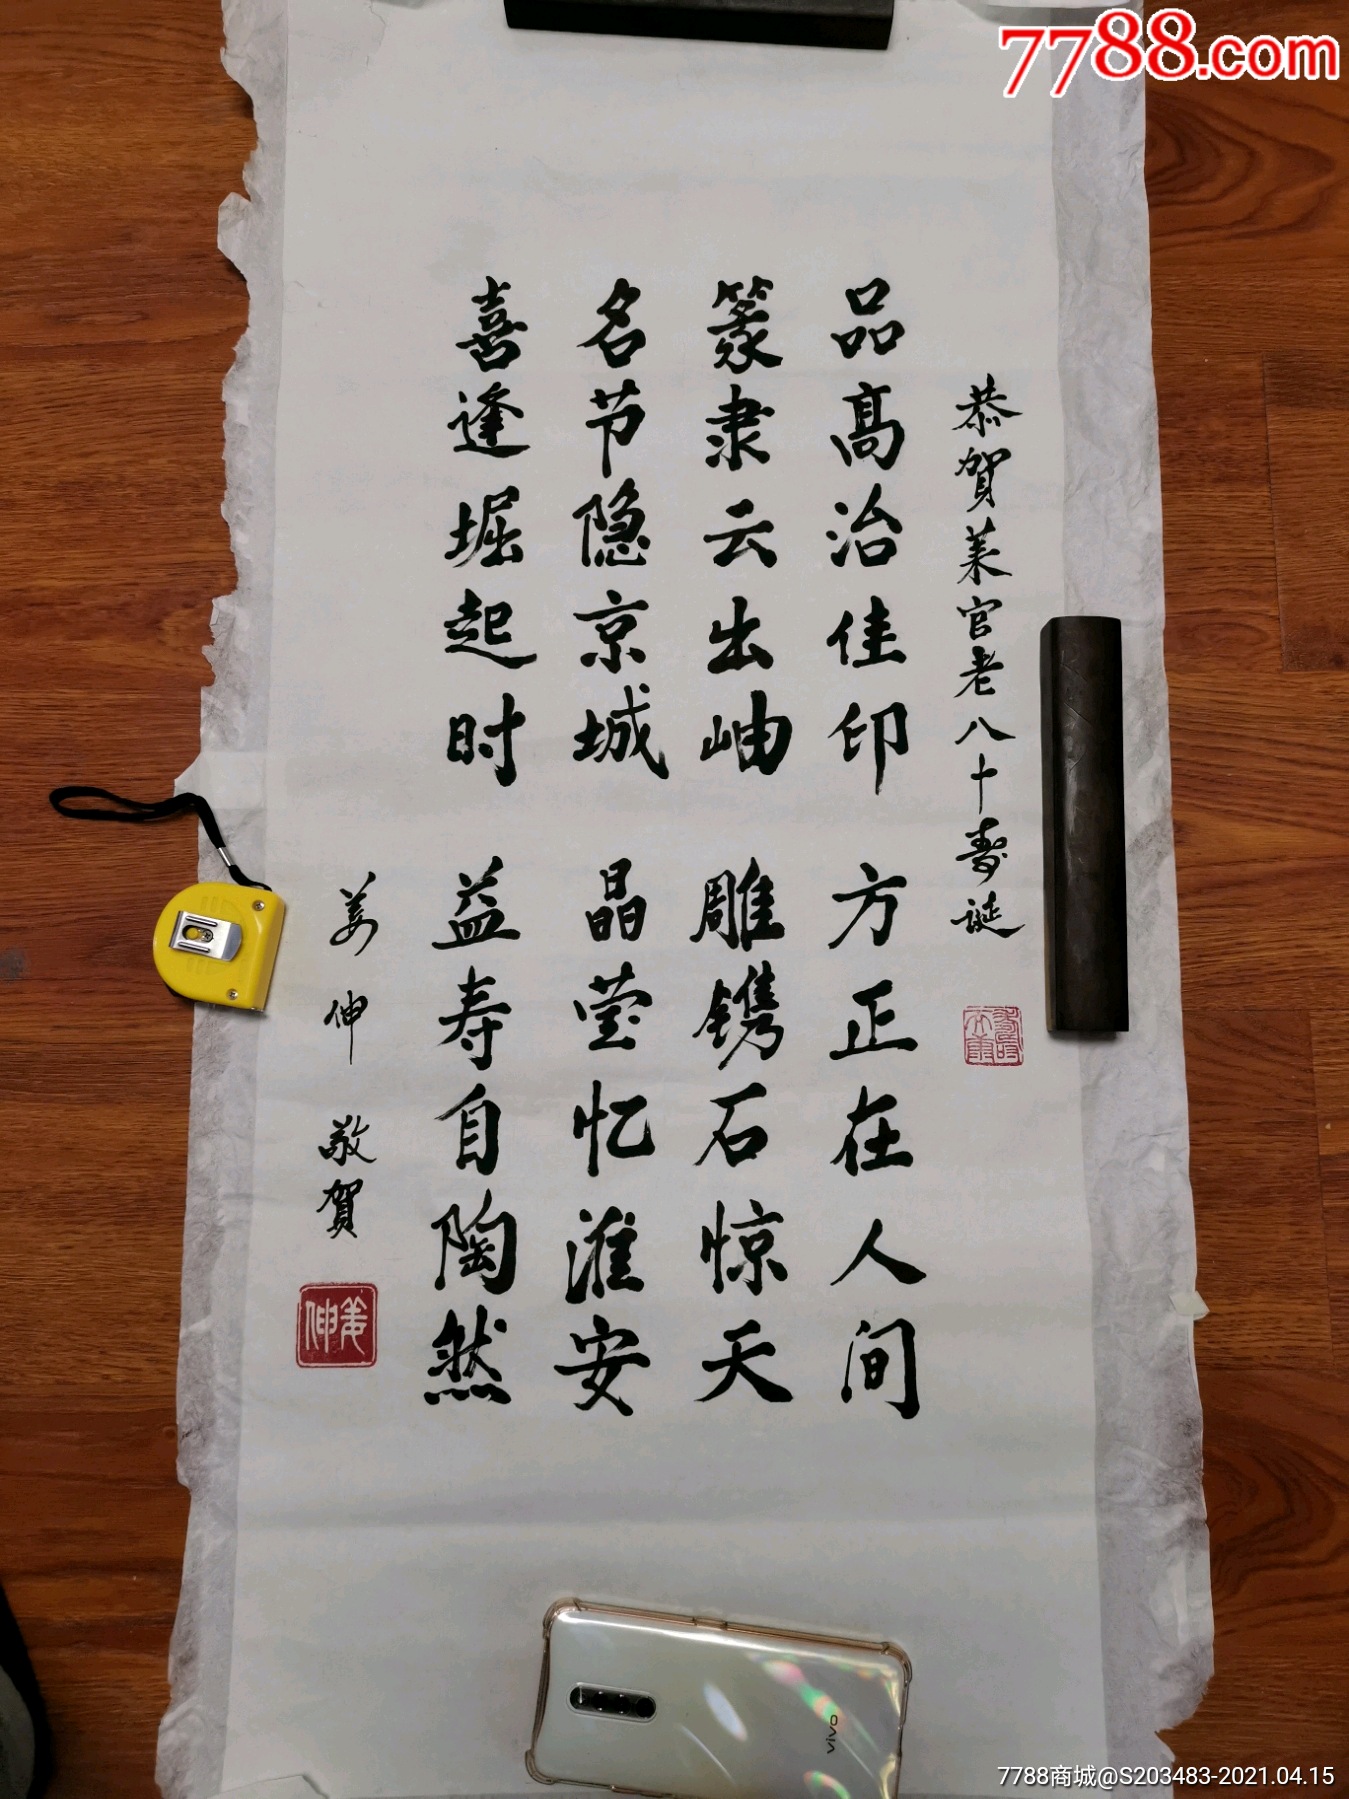 7788.com
恭賀莱官老八十寿誕
品高治佳印 方正在人间
篆隶云出岫 雕镌石惊天
名节隐京城 晶莹忆淮安
喜逢堀起时 益寿自陶然
姜伸 敬賀
姜伸
vivo
7788商城@S203483-2021.04.15